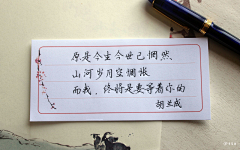 原是今生今世已惘然
山河岁月空惆怅
而我，终将是要等着你的
胡兰成